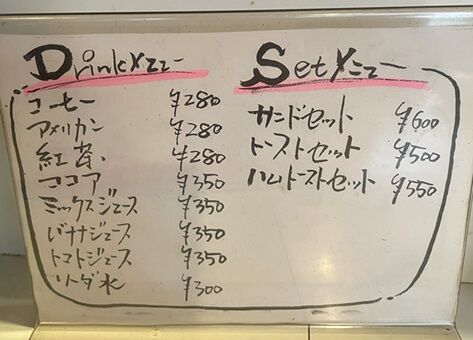 Drinkメニュー
コーヒー ¥280
アメリカン ¥280
紅茶 ¥280
ココア ¥350
ミックスジュース ¥350
バナナジュース ¥350
トマトジュース ¥350
ソーダ水 ¥300
Setメニュー
サンドセット ¥600
トーストセット ¥500
ハムトーストセット ¥550